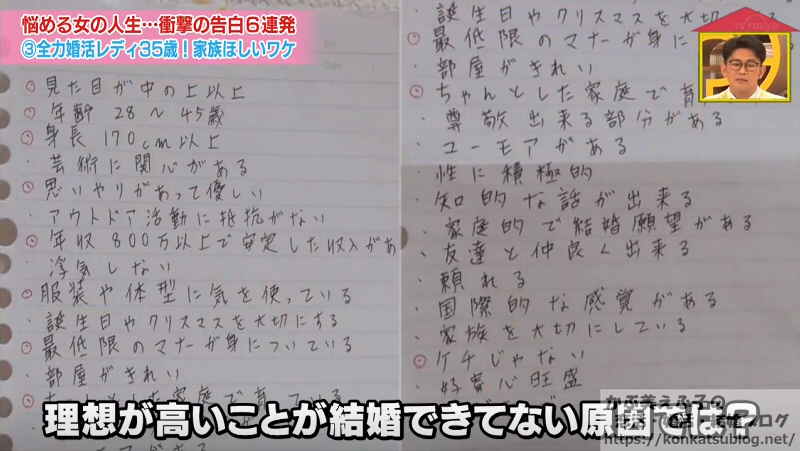 悩める女の人生…衝撃の告白6連発
③全力婚活レディ35歳！家族ほしいワケ
見た目が中の上以上
年齢 28～45歳
身長 170cm以上
・芸術に関心がある
思いやりがあって優しい
・アウトドア活動に抵抗がない
年収 800万以上で安定した収入があ
・浮気しない
服装や体型に気を使っている
誕生日やクリスマスを大切にする
最低限のマナーが身についている
・部屋がきれい
誕生日やクリスマスを大切
最低限のマナーが身に
・部屋がきれい
ちゃんとした家庭で育
・尊敬出来る部分がある
・ユーモアがある
・性に積極的
・知的な話が出来る
・家庭的で結婚願望がある
・友達と仲良く出来る
・頼れる
・国際的な感覚がある
・家族を大切にしている
ケチじゃない
・好奇心旺盛
理想が高いことが結婚できてない原因では？
https://konkatsublog.net/